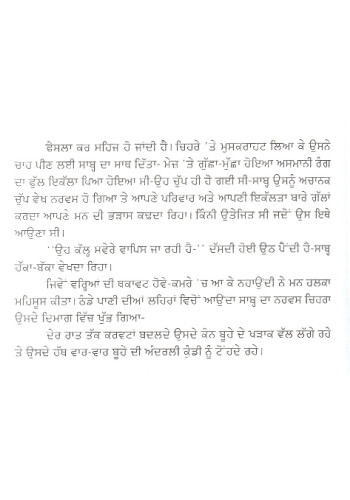 ਫੈਸਲਾ ਕਰ ਸਹਿਜ ਹੋ ਜਾਂਦੀ ਹੈ। ਚਿਹਰੇ 'ਤੇ ਮੁਸਕਰਾਹਟ ਲਿਆ ਕੇ ਉਸਨੇ
ਚਾਹ ਪੀਣ ਲਈ ਸਾਬ੍ਹ ਦਾ ਸਾਥ ਦਿੱਤਾ- ਮੇਜ਼ 'ਤੇ ਗੁੱਛਾ-ਮੁੱਛਾ ਹੋਇਆ ਅਸਮਾਨੀ ਰੰਗ
ਦਾ ਫੁੱਲ ਇਕੱਲਾ ਪਿਆ ਹੋਇਆ ਸੀ-ਉਹ ਚੁੱਪ ਹੀ ਹੋ ਗਈ ਸੀ-ਸਾਬ੍ਹ ਉਸਨੂੰ ਅਚਾਨਕ
ਚੁੱਪ ਵੇਖ ਨਰਵਸ ਹੋ ਗਿਆ ਤੇ ਆਪਣੇ ਪਰਿਵਾਰ ਅਤੇ ਆਪਣੀ ਇਕੱਲਤਾ ਬਾਰੇ ਗੱਲਾਂ
ਕਰਦਾ ਆਪਣੇ ਮਨ ਦੀ ਭੜਾਸ ਕਢਦਾ ਰਿਹਾ। ਕਿੰਨੀ ਉਤੇਜਿਤ ਸੀ ਜਦੋਂ ਉਸ ਇਥੇ
ਆਉਣਾ ਸੀ।
''ਉਹ ਕੱਲ੍ਹ ਸਵੇਰੇ ਵਾਪਿਸ ਜਾ ਰਹੀ ਹੈ-'' ਦੱਸਦੀ ਹੋਈ ਉਠ ਪੈਂਦੀ ਹੈ-ਸਾਬ੍ਹ
ਹੱਕਾ-ਬੱਕਾ ਵੇਖਦਾ ਰਿਹਾ।
ਜਿਵੇਂ ਵਰ੍ਹਿਆਂ ਦੀ ਥਕਾਵਟ ਹੋਵੇ-ਕਮਰੇ 'ਚ ਆ ਕੇ ਨਹਾਉਂਦੀ ਨੇ ਮਨ ਹਲਕਾ
ਮਹਿਸੂਸ ਕੀਤਾ। ਠੰਡੇ ਪਾਣੀ ਦੀਆਂ ਲਹਿਰਾਂ ਵਿਚੋਂ ਆਉਂਦਾ ਸਾਬ੍ਹ ਦਾ ਨਰਵਸ ਚਿਹਰਾ
ਉਸਦੇ ਦਿਮਾਗ ਵਿੱਚ ਖੁੱਭ ਗਿਆ-
ਦੇਰ ਰਾਤ ਤੱਕ ਕਰਵਟਾਂ ਬਦਲਦੇ ਉਸਦੇ ਕੰਨ ਬੂਹੇ ਦੇ ਖੜਾਕ ਵੱਲ ਲੱਗੇ ਰਹੇ
ਤੇ ਉਸਦੇ ਹੱਥ ਵਾਰ-ਵਾਰ ਬੂਹੇ ਦੀ ਅੰਦਰਲੀ ਕੁੰਡੀ ਨੂੰ ਟੋਂਹਦੇ ਰਹੇ।